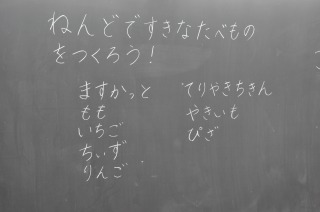 ねんどですきなたべもの
をつくろう！
ますかっと
もも
いちご
ちぃず
りんご
てりやきちきん
やきいも
ぴざ